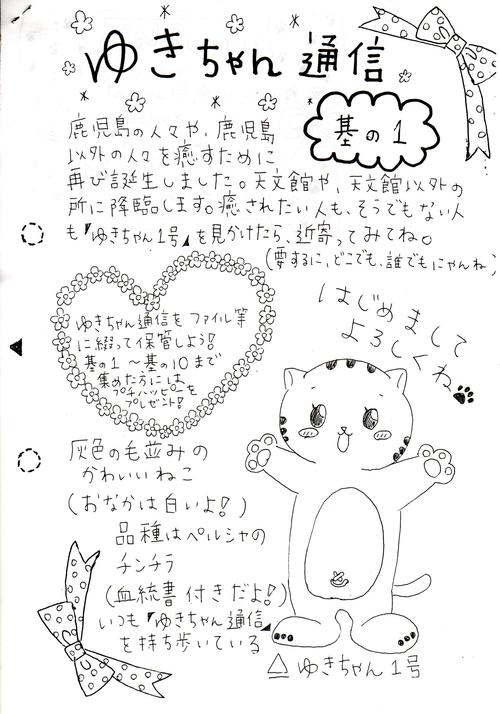 ゆきちゃん通信
基の1
鹿児島の人々や、鹿児島
以外の人々を癒すために
再び誕生しました。天文館や、天文館以外の
所に降臨します。癒されたい人も、そうでもない人
も『ゆきちゃん1号』を見かけたら、近寄ってみてね。
(要するに、どこでも、誰でもにゃんね)
ゆきちゃん通信をファイル等
に綴って保管しよう!
基の1〜基の10まで
集めた方には
プチハッピーを
プレゼント!
はじめまして
よろしくね
灰色の毛並みの
かわいいねこ
(おなかは白いよ!)
品種はペルシャの
チンチラ
(血統書付きだよ!)
いつも『ゆきちゃん通信』
を持ち歩いている
△ゆきちゃん1号